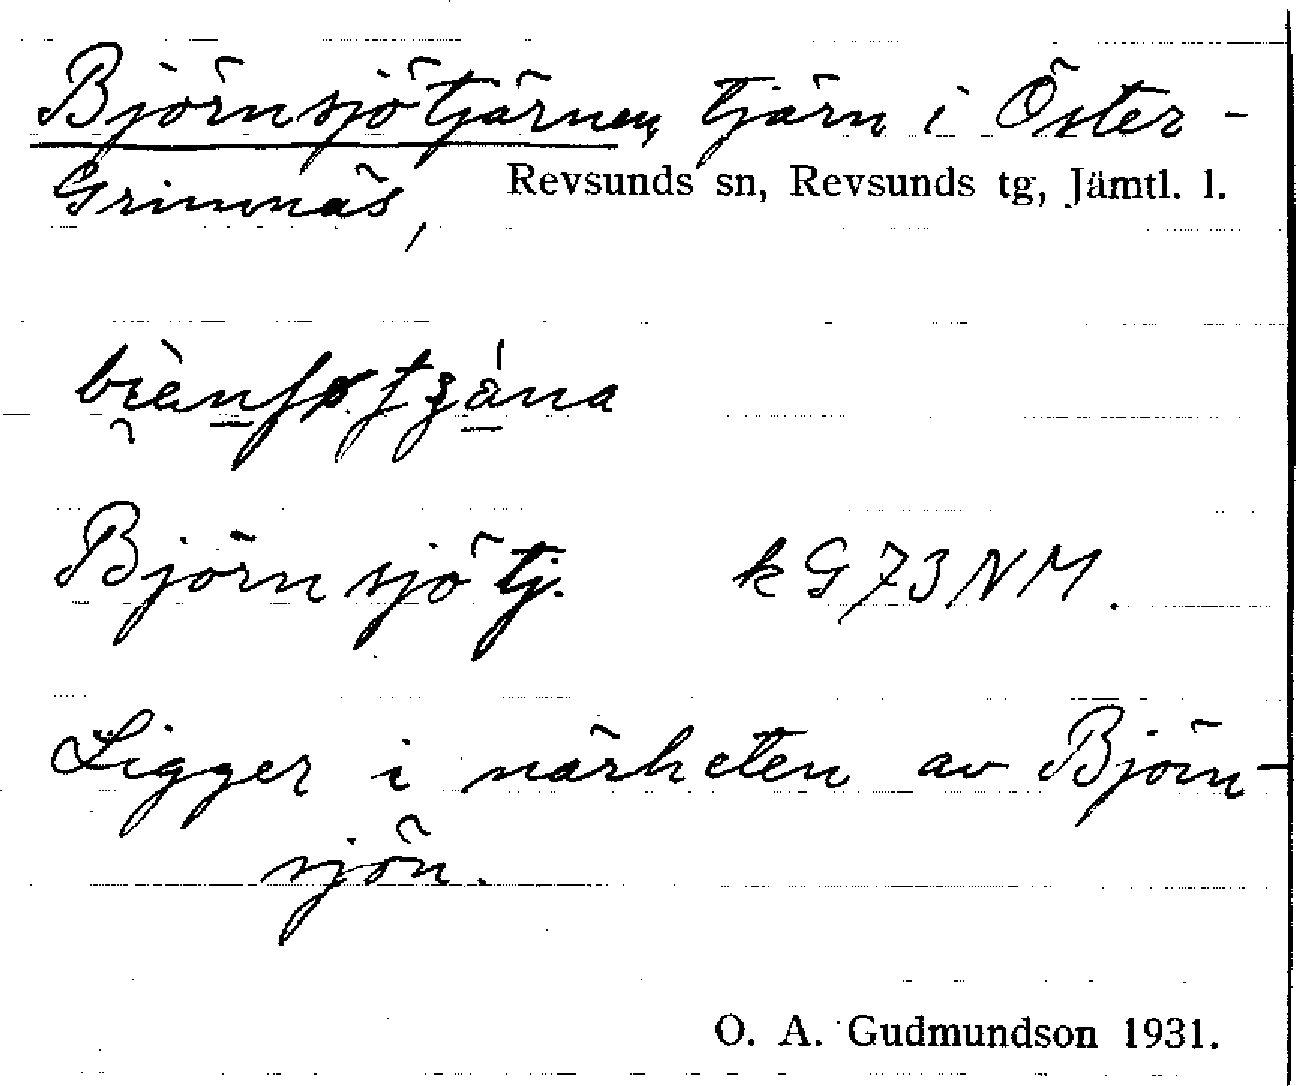 Björnsjötjärnen, tjärn i Öster-
Grimnäs, Revsunds sn, Revsunds tg, Jämtl. l.
Björnsjötj. k G 73 NM.
Ligger i närheten av Björn-
sjön.
O. A. Gudmundson 1931.